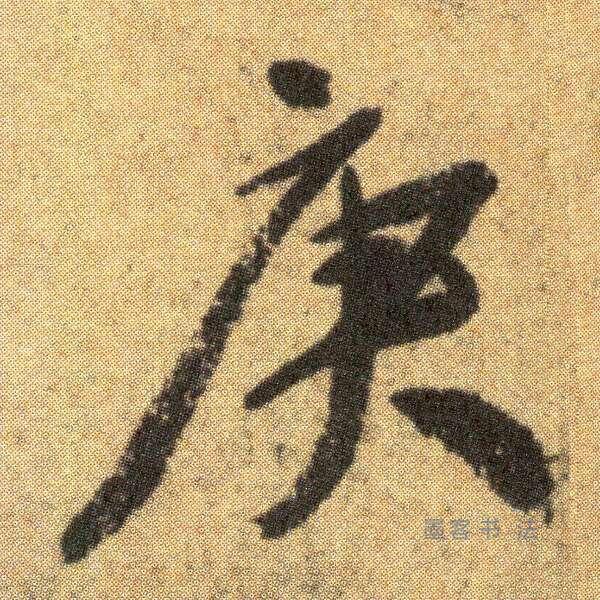 庚
墨客书法